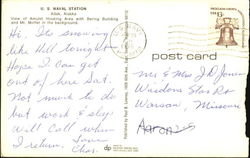 U. S. NAVAL STATION
Adak, Alaska
View of Amulet Housing Area with Bering Building
and Mt. Moffet in the background.
Hi. Its snowing
like Hell tonight
Hope I can get
out of here Sat.
Not much to do
but work & sleep
Will Call when
I return. Love
Chas.
13c
post card
Mr & Mrs J D Jones
Warsaw, Missouri
Aaron
dp